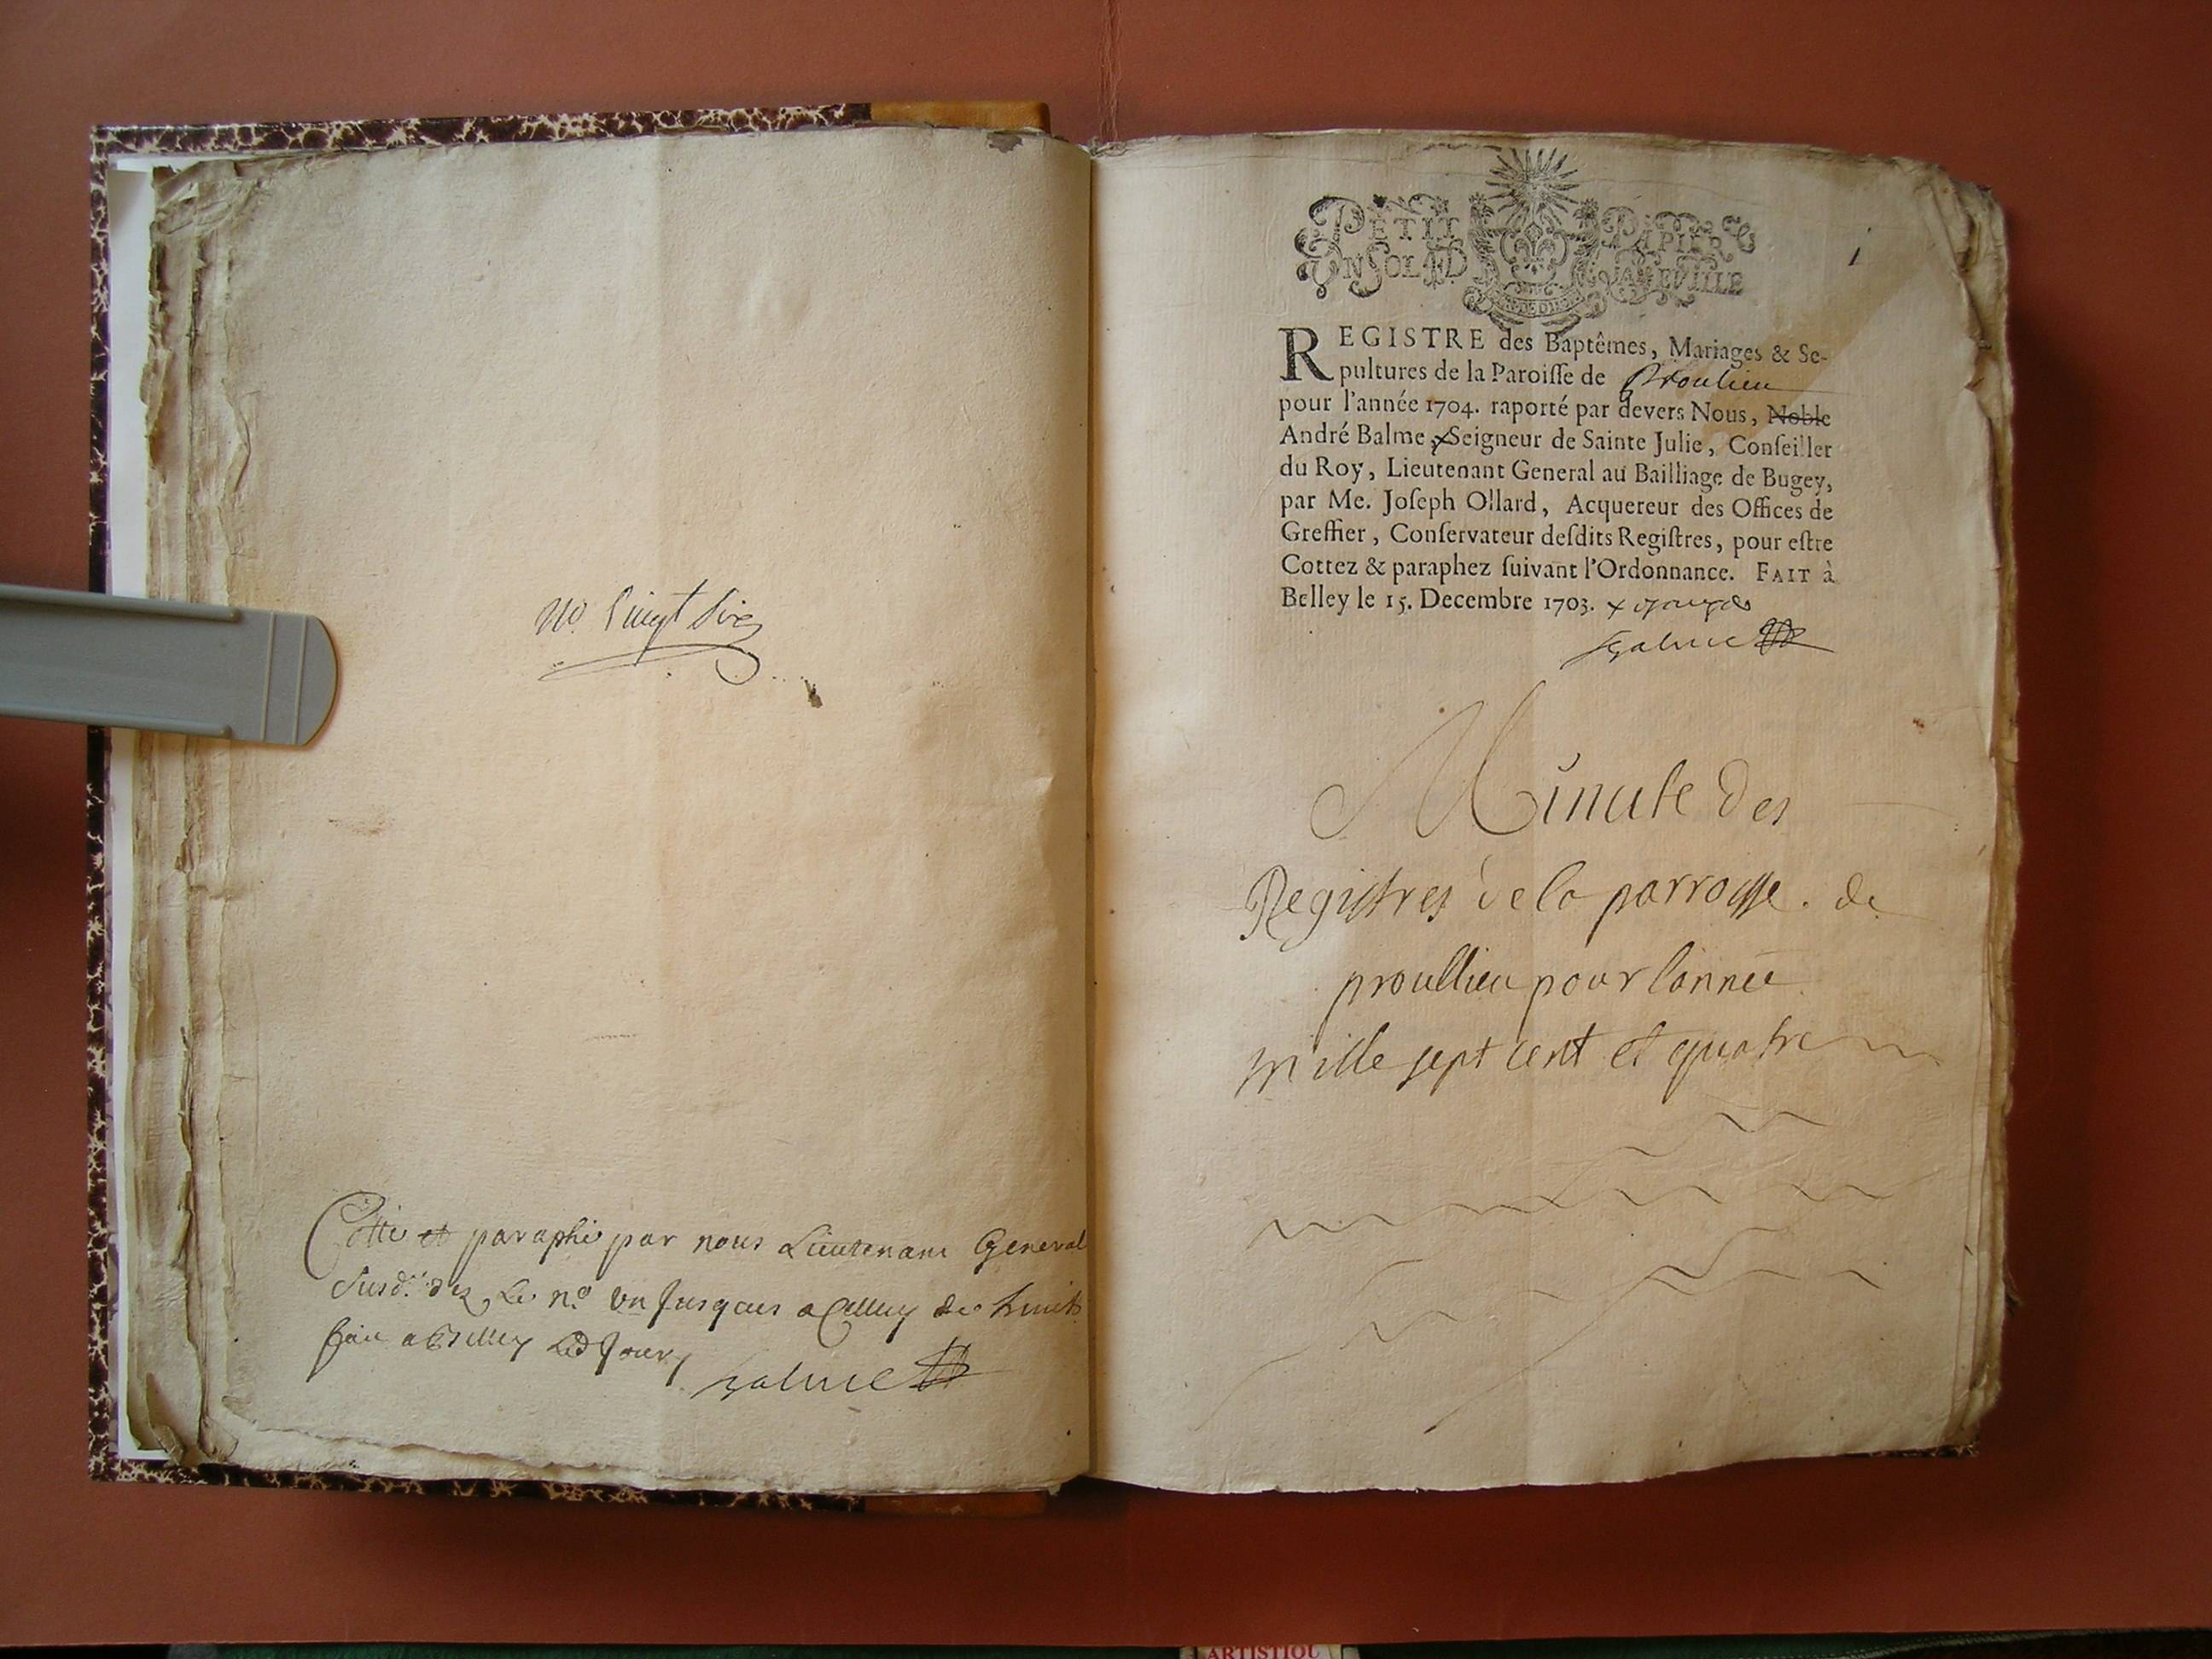 No. Vingt Six
Cotté et paraphé par nous Lieutenant General
susd. dez Le no. un jusques a Celluy de huit
fait a Belley Led jour
Balme
PETIT PAPIER
UN SOL
1
REGISTRE des Baptêmes, Mariages & Se-
pultures de la Paroiſſe de Proulieu
pour l'année 1704. raporté par devers Nous, Noble
André Balme, x Seigneur de Sainte Julie, Conſeiller
du Roy, Lieutenant General au Bailliage de Bugey,
par Me. Joſeph Ollard, Acquereur des Offices de
Greffier, Conſervateur deſdits Regiſtres, pour eſtre
Cottez & paraphez ſuivant l'Ordonnance. FAIT à
Belley le 15. Decembre 1703. x
Balme
Minute des
Registres de la parroisse. de
proullieu pour lannee
mille sept cent et quatre
ARTISTIQU